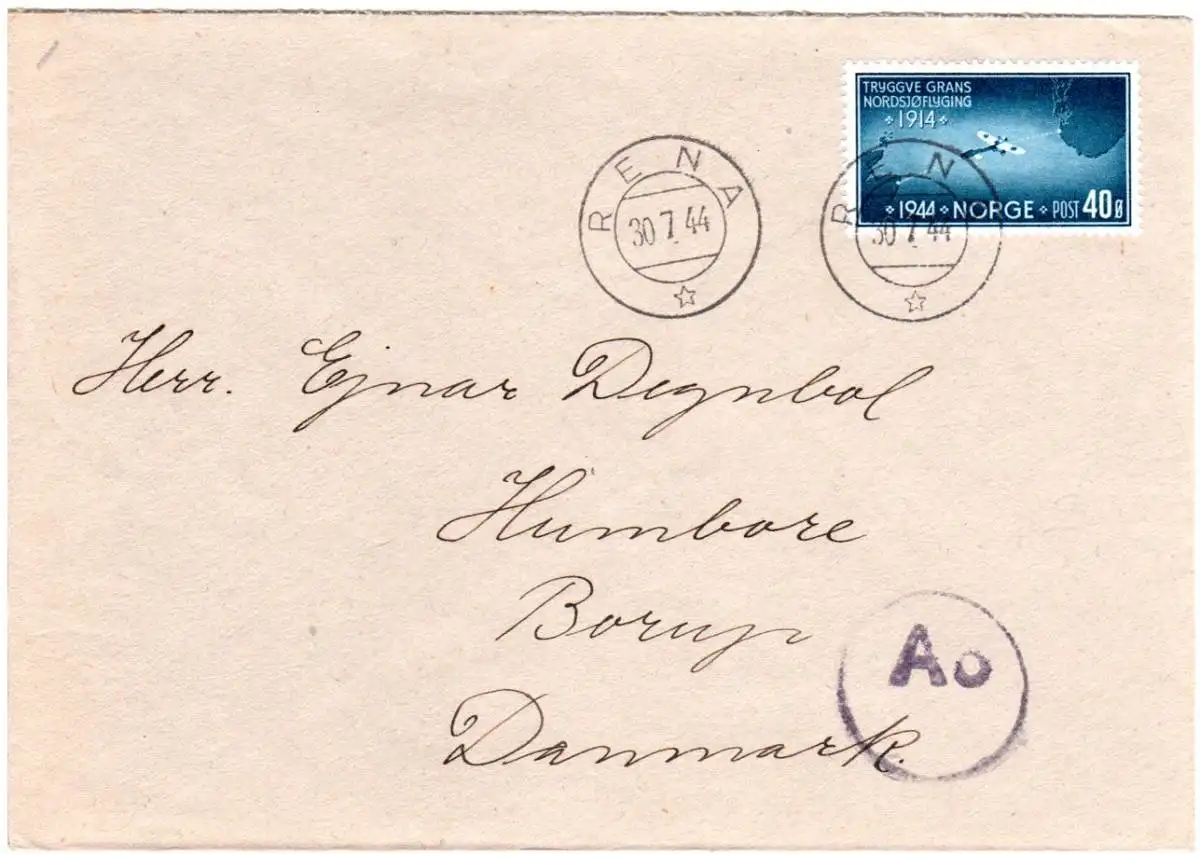 TRYGGVE GRANS
NORDSJØFLYGING
1914
1944 NORGE POST 40 Ø
RENA
30 7. 44
REN
30 7. 44
Herr. Ejnar Degnbol
Humbore
Borup
Danmark.
Ao